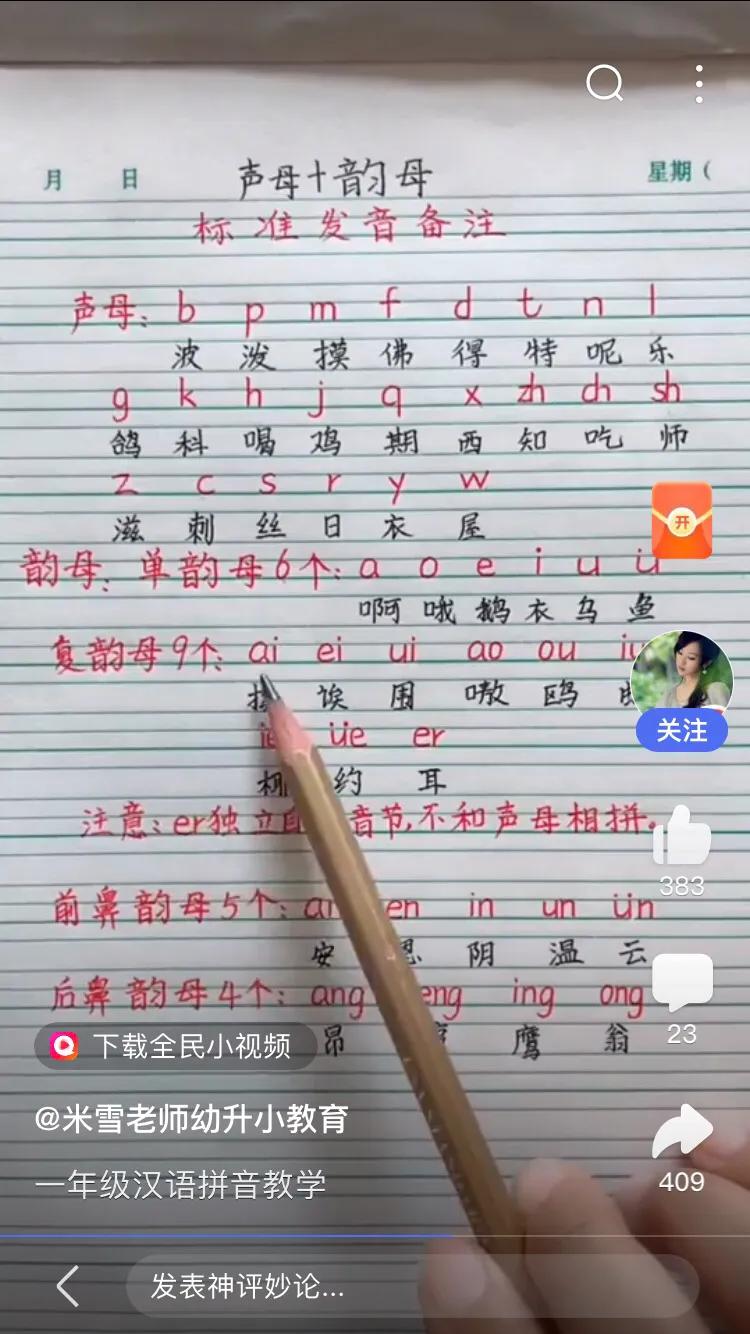 月 日 声母+韵母 星期(
标准发音备注
声母: b p m f d t n l
波 泼 摸 佛 得 特 呢 乐
g k h j q x zh ch sh
鸽 科 喝 鸡 期 西 知 吃 师
z c s r y w
滋 刺 丝 日 衣 屋
开
韵母: 单韵母6个: a o e i u ü
啊 哦 鹅 衣 乌 鱼
复韵母9个: ai ei ui ao ou
诶 围 嗷 鸥
关注
üe er
约 耳
注意: er独立 音节,不和声母相拼。
383
前鼻韵母5个: en in un ün
安 恩 阴 温 云
后鼻韵母4个: ang eng ing ong
昂 鹰 翁
23
下载全民小视频
@米雪老师幼升小教育
一年级汉语拼音教学
409
发表神评妙论...